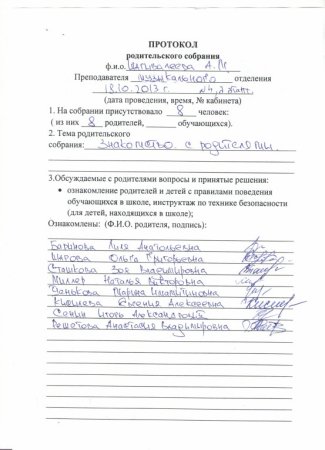 ПРОТОКОЛ
родительского собрания
ф.и.о. А.М
Преподавателя музыкального отделения
18.10.2013 г. №4, 2 этаж
(дата проведения, время, № кабинета)
1. На собрании присутствовало 8 человек:
( из них 8 родителей, обучающихся).
2. Тема родительского
собрания: Знакомство с родителями.
3.Обсуждаемые с родителями вопросы и принятые решения:
• ознакомление родителей и детей с правилами поведения
обучающихся в школе, инструктаж по технике безопасности
(для детей, находящихся в школе);
Ознакомлены: (Ф.И.О. родителя, подпись):
Баринова Лилия Анатольевна
Широва Ольга Григорьевна
Сташкова Зоя Владимировна
Миллер Наталья Викторовна
Марина
Евгения Алексеевна
Сенин Игорь Александрович
Решетова Анастасия Владимировна